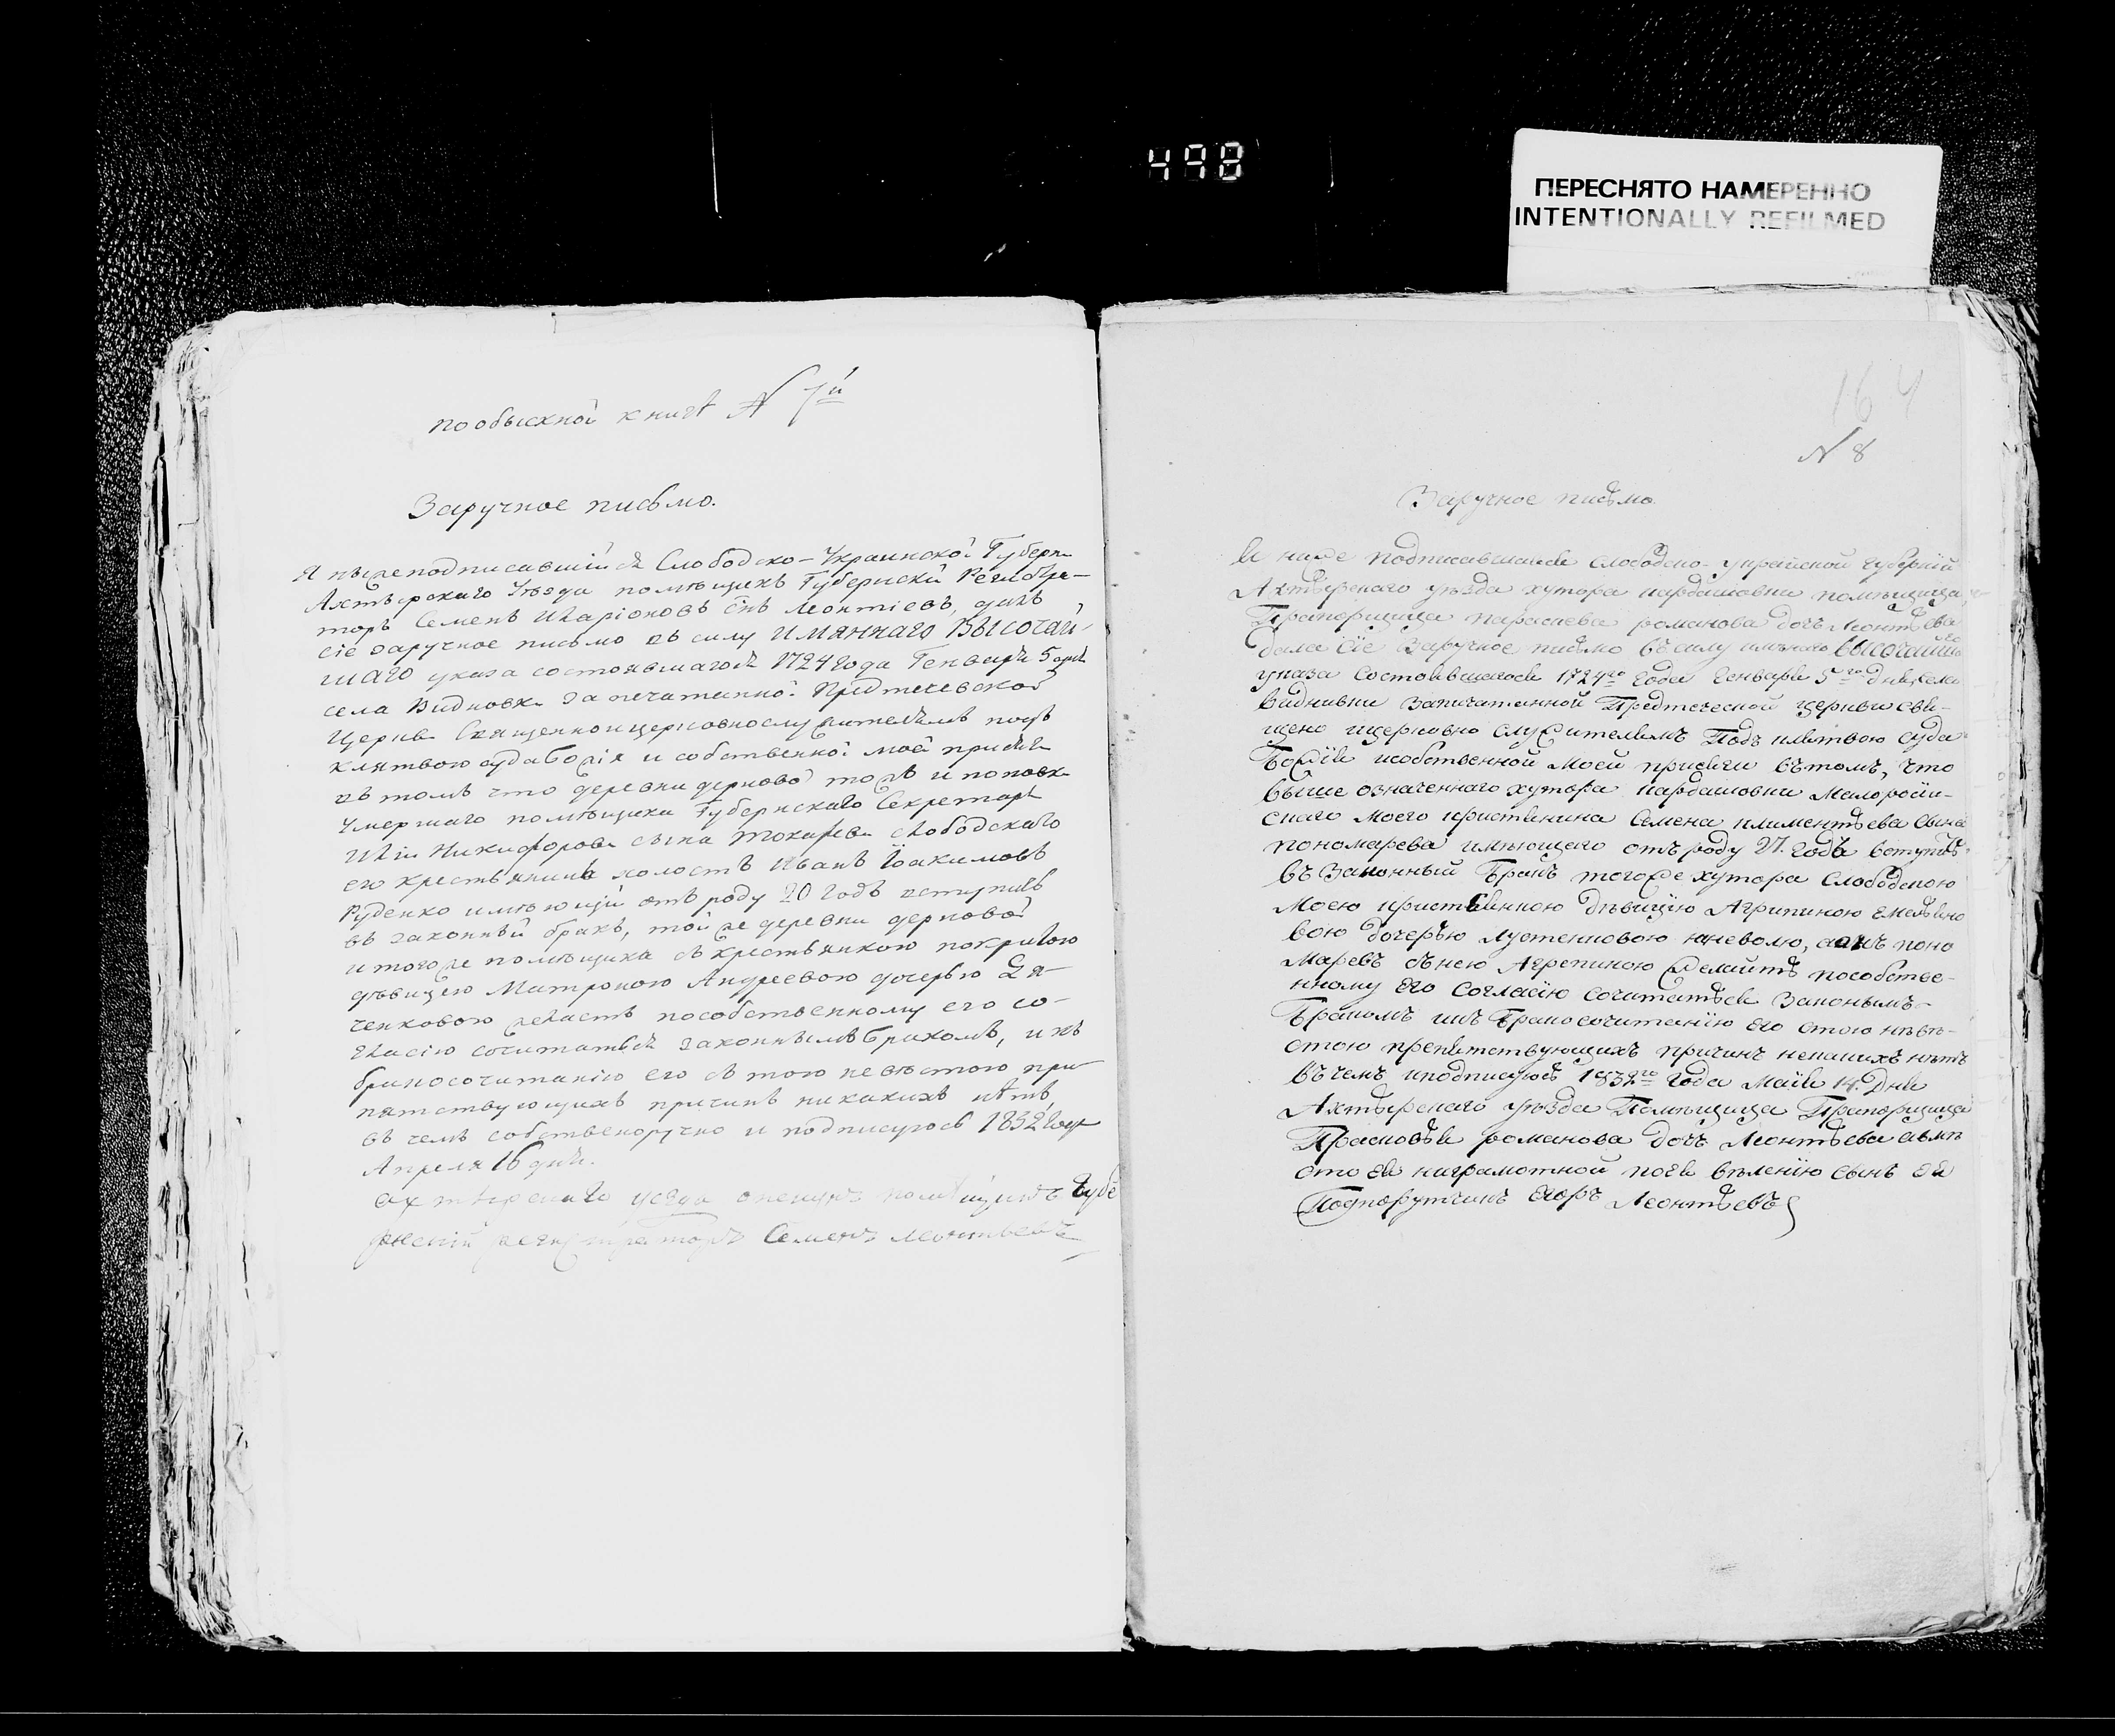 498
ПЕРЕСНЯТО НАМЕРЕННО
INTENTIONALLY REFILMED
пообыскной книгѣ N 7й
Заручное письмо.
Я нижеподписавшійся Слободско-Украинской Губерн
Ахтырскаго Уѣзда помѣщикъ Губернскій Регистра-
торъ Семенъ Иларіоновъ снъ Леонтіевъ, далъ
сіе заручное письмо въ силу имяннаго ВЫСОЧАЙ-
ШАГО указа состоявшагося 1724 года Генваря 5 дня
села Видновк запечатанной Предтечевской
Церкв Священноицерковнослужителямъ подъ
клятвою суда Божія и собственной моей присяги
въ томъ что деревни дерновой тожъ и поповк
умершаго помѣщика Губернскаго Секретаря
Иліи Никифорова сына Токарева слободскаго
его крестьянинъ холостъ Иванъ Іоакимовъ
Руденко имѣющій отъ роду 20 годъ вступить
въ законный бракъ, той же деревни дерновой
и того же помѣщика съ крестьянкою
дѣвицею Матроною Андреевою дочерью Дя-
ченковою желаетъ пособственному его со-
гласію сочитаться законнымъ бракомъ, и къ
бракосочитанію его съ тою невѣстою пре
пятствующихъ причинъ никакихъ нѣтъ,
въ чемъ собственоручно и подписуюсь 1832 года
Апреля 16 дня.
ахтырскаго уезда помѣщикъ Губе
рнскій регистраторъ Семенъ Леонтьевъ
164
N 8
Заручное письмо
Я ниже подписавшаяся слободско-украйской губерніи
Ахтырскаго уѣзда хутора кардашовки помѣщица,
Прапорщица параскева романова дочь Леонтьева
дала сіе Заручное письмо въсилу имѣнаго высочайшаго
указа состоявшагося 1724го года Генваря 5го дня села
видновки Запичатанной Предтеческой церкви свя-
щено ицерковно служителямъ Подъ клятвою суда
Божія исобственной моей присяги вътомъ, что
выше означеннаго хутора кардашовки Малоросій-
скаго моего кристянина Семена климентьева сына
пономарева имѣющего отъ роду 27. годъ вступить
въ Законный Бракъ тогоже хутора слободскою
моею кристянкою дѣвицію Агрипиною емелѣяно
вою дочерью Лустенковою юневолю, аонъ поно
маревъ сънею Агрепиною Желаитъ пособстве-
нному его согласію сочитаться Законымъ
Бракомъ икъ Бракосочитанію его стою невѣ-
стою препятствующихъ причинъ некакихъ нѣтъ
въчемъ иподписуюсь 1832го года Маія 14. Дня
Ахтырскаго уѣзда Помѣщица Прапорщица
Прасковья романова дочь Леонтьева авмѣ
сто ея награмотной поея вѣленію сынъ ея
Подпорутчикъ Егоръ Леонтьевъ